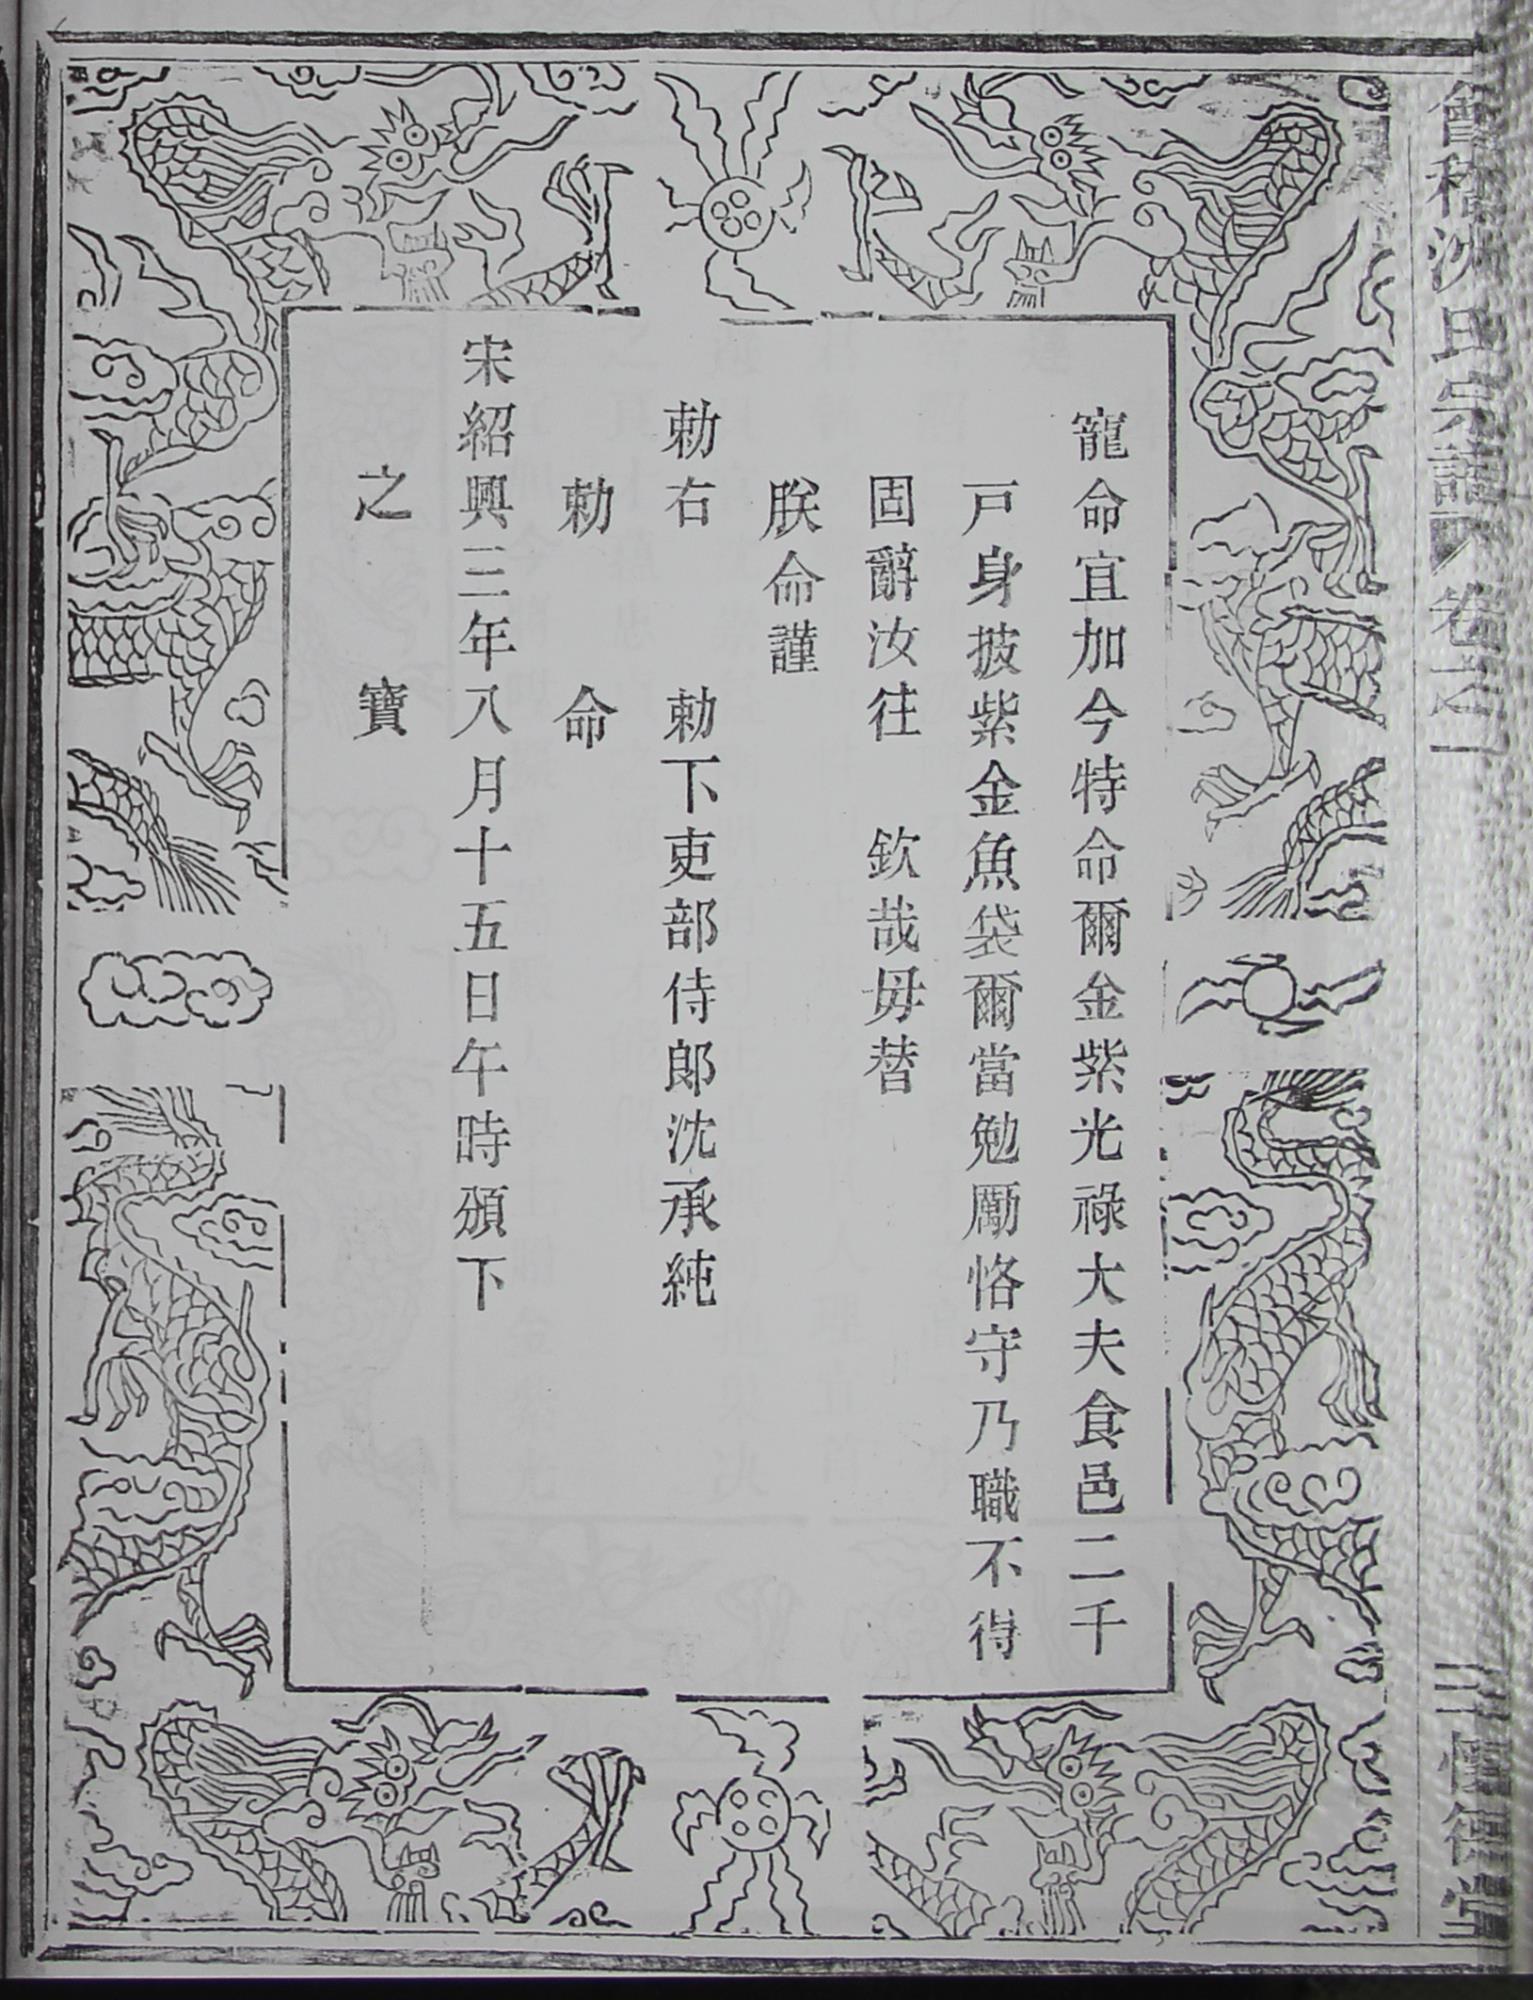 寵命宜加今特命爾金紫光祿大夫食邑二千
戸身披紫金魚袋爾當勉勵恪守乃職不得
固辭汝往 欽哉毋替
朕命謹
勅右 勅下吏部侍郎沈承純
勅命
宋紹興三年八月十五日午時頒下
之寶
會稽沈氏宗譜 卷之一